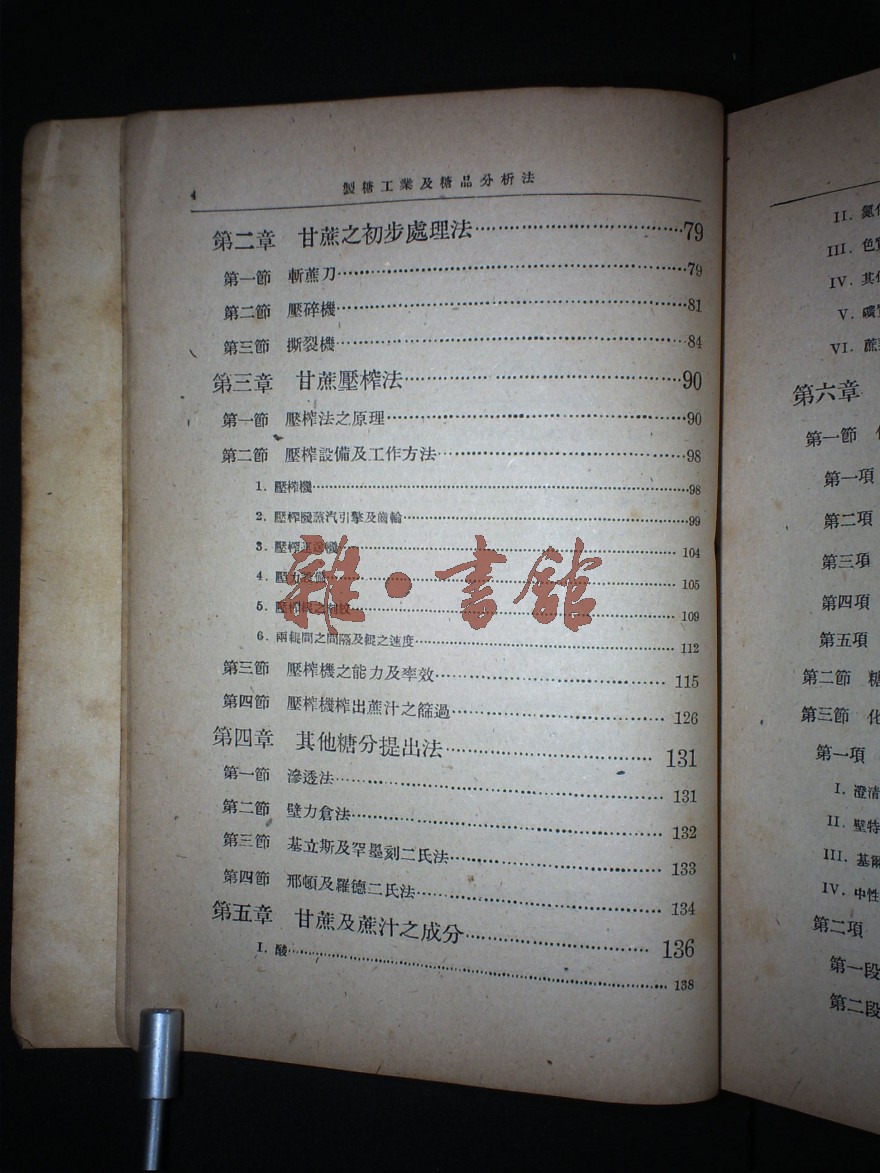 4
製糖工業及糖品分析法
第二章 甘蔗之初步處理法⋯79
第一節 斬蔗刀⋯79
第二節 壓碎機⋯81
第三節 撕裂機⋯84
第三章 甘蔗壓榨法⋯90
第一節 壓榨法之原理⋯90
第二節 壓榨設備及工作方法⋯98
1. 壓榨機⋯98
2. 壓榨機蒸汽引擎及齒輪⋯99
3. 壓榨⋯104
4. 壓力⋯105
5. 壓榨⋯109
6. 兩輥間之間隔及輥之速度⋯112
第三節 壓榨機之能力及率效⋯115
第四節 壓榨機榨出蔗汁之篩過⋯126
第四章 其他糖分提出法⋯131
第一節 滲透法⋯131
第二節 壁力倉法⋯132
第三節 基立斯及罕墨刻二氏法⋯133
第四節 邢頓及羅德二氏法⋯134
第五章 甘蔗及蔗汁之成分⋯136
I. 酸⋯138
雜·書館
II. 氮
III. 色
IV. 其
V. 礦
VI. 蔗
第六章
第一節
第一項
第二項
第三項
第四項
第五項
第二節 糖
第三節 化
第一項
I. 澄清
II. 壁特
III. 基爾
IV. 中性
第二項
第一段
第二段